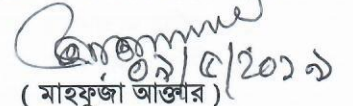 ০৯/৫/২০১৯
( মাহফুজা আক্তার )